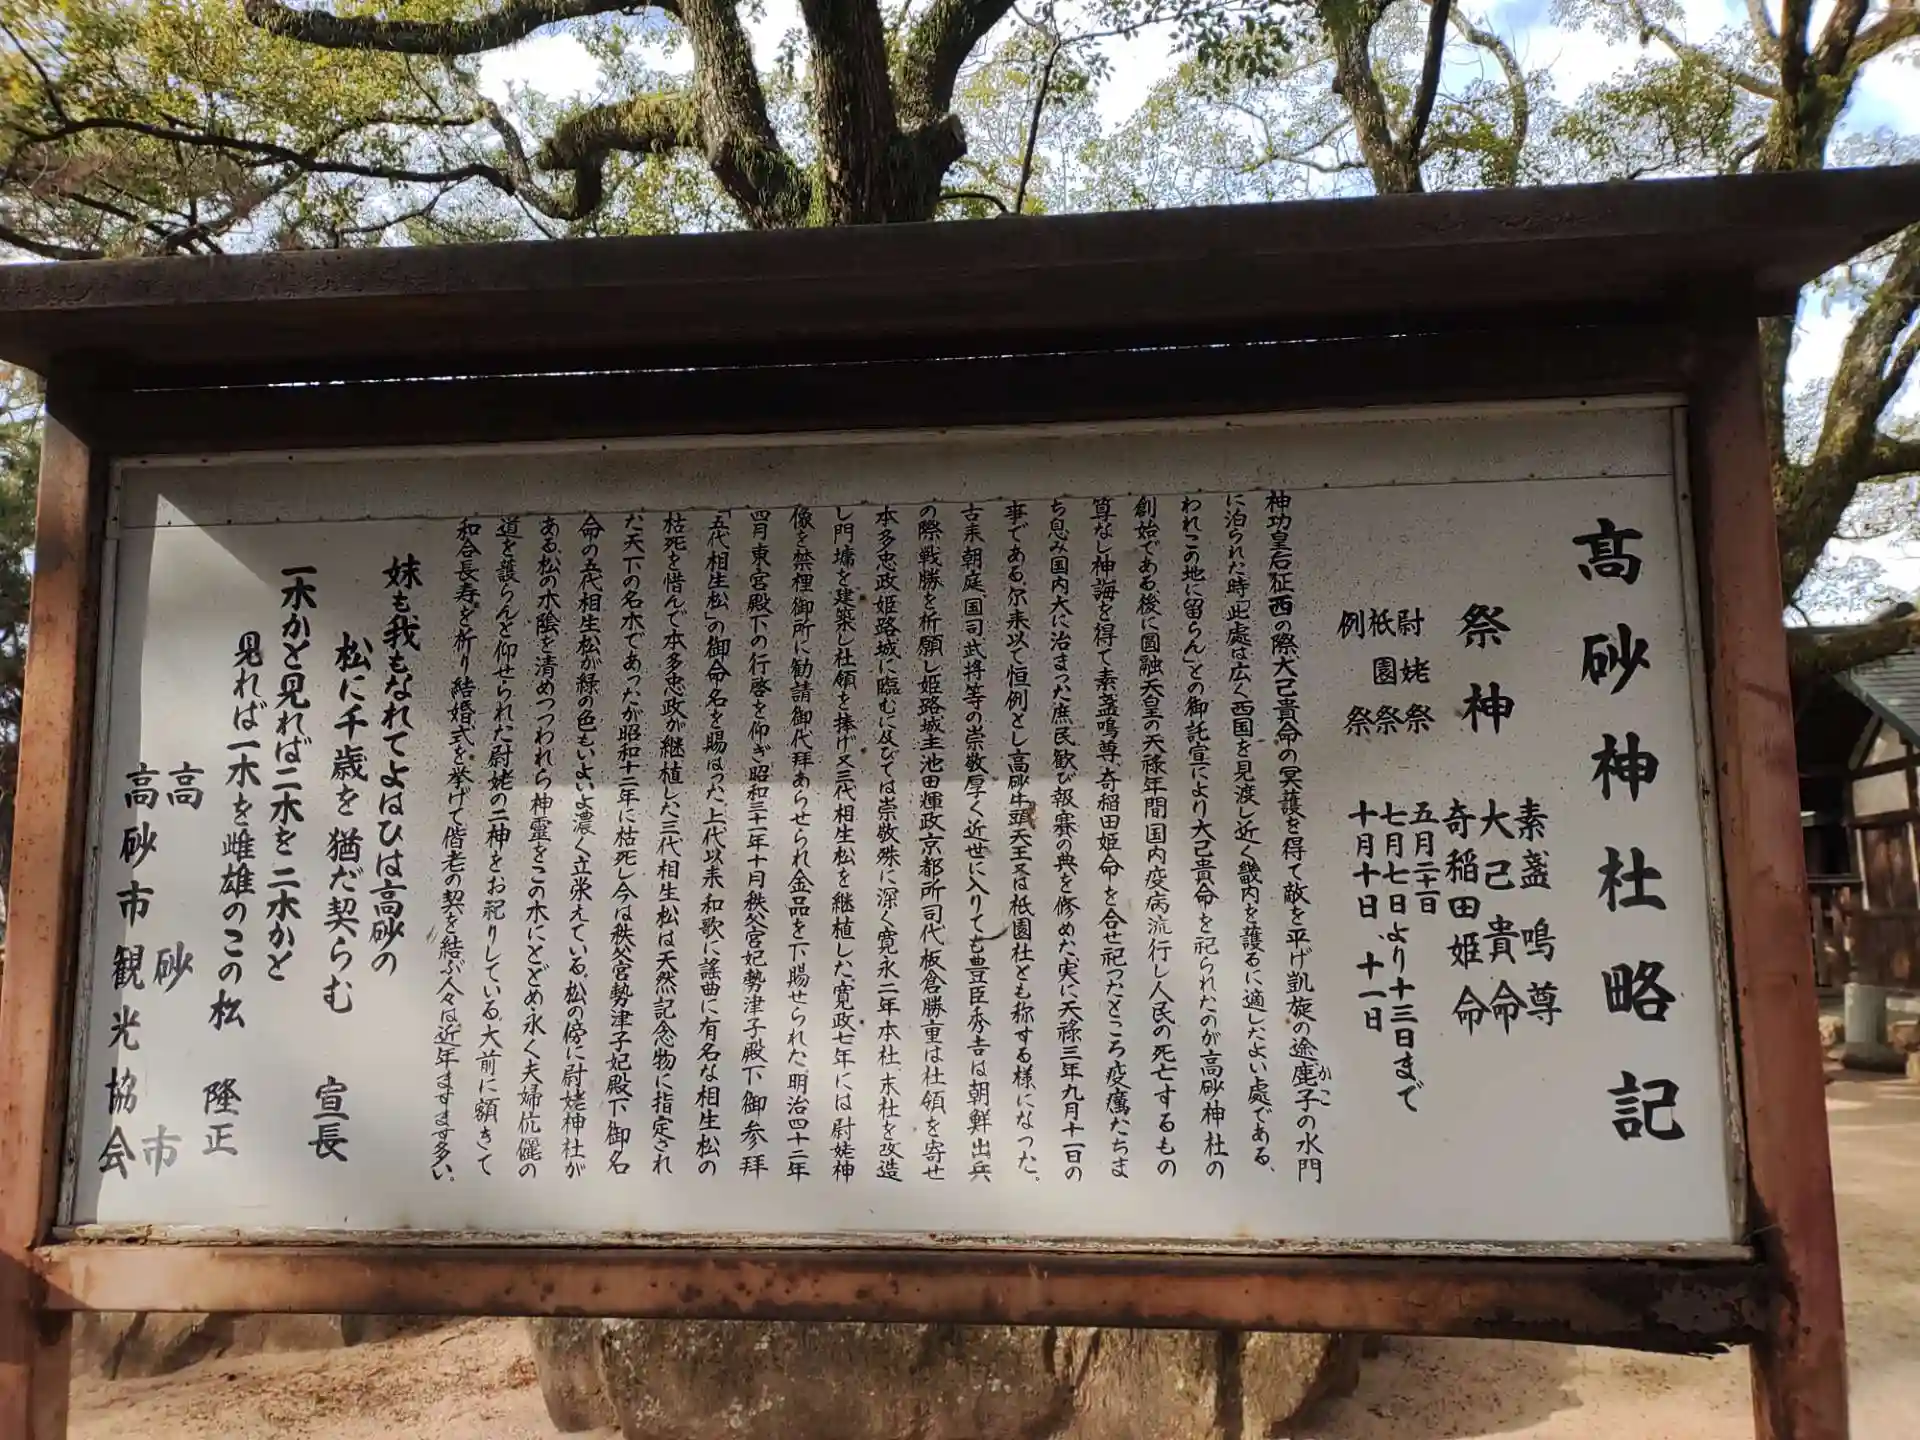 高砂神社略記
祭神
素盞嗚尊
大己貴命
奇稲田姫命
尉姥祭 五月二十一日
祇園祭 七月七日より十三日まで
例祭 十月十日、十一日
神功皇后征西の際大己貴命の冥護を得て敵を平げ凱旋の途鹿子の水門
かこ
に泊られた時「此處は広く西国を見渡し近く畿内を護るに適したよい處である、
われこの地に留らん」との御託宣により大己貴命を祀られたのが高砂神社の
創始である後に圓融天皇の天禄年間国内疫病流行し人民の死亡するもの
算なし神誨を得て素盞嗚尊、奇稲田姫命を合せ祀つたところ疫癘たちま
ち息み国内大に治まった庶民歓び報賽の典を修めた、実に天禄三年九月十一日の
事である、尓来以て恒例とし高砂牛頭天王又は祇園社とも称する様になつた。
古来朝庭国司武将等の崇敬厚く近世に入りても豊臣秀吉は朝鮮出兵
の際戦勝を祈願し姫路城主池田輝政京都所司代板倉勝重は社領を寄せ
本多忠政姫路城に臨むに及びては崇敬殊に深く寛永二年本社、末社を改造
し門墉を建築し社領を捧げ又三代相生松を継植した、寛政七年には尉姥神
像を禁裡御所に勧請御代拝あらせられ金品を下賜せられた、明治四十二年
四月東宮殿下の行啓を仰ぎ昭和三十一年十月秩父宮妃勢津子殿下御参拝
「五代相生松」の御命名を賜はつた上代以来和歌に謡曲に有名な相生松の
枯死を惜んで本多忠政が継植した三代相生松は天然記念物に指定され
た天下の名木であつたが昭和十二年に枯死し今は秩父宮勢津子妃殿下御名
命の五代相生松が緑の色もいよいよ濃く立栄えている。松の傍に尉姥神社が
ある、松の木陰を清めつつわれら神霊をこの木にとどめ永く夫婦伉儷の
道を護らんを仰せられた尉姥の二神をお祀りしている、大前に額きて
和合長寿を祈り結婚式を挙げて偕老の契を結ぶ人々は近年ますます多い。
妹も我もなれてよはひは高砂の
松に千歳を猶だ契らむ 宣長
一木かと見れば二木を二木かと
見れば一木を雌雄のこの松 隆正
高砂市
高砂市観光協会